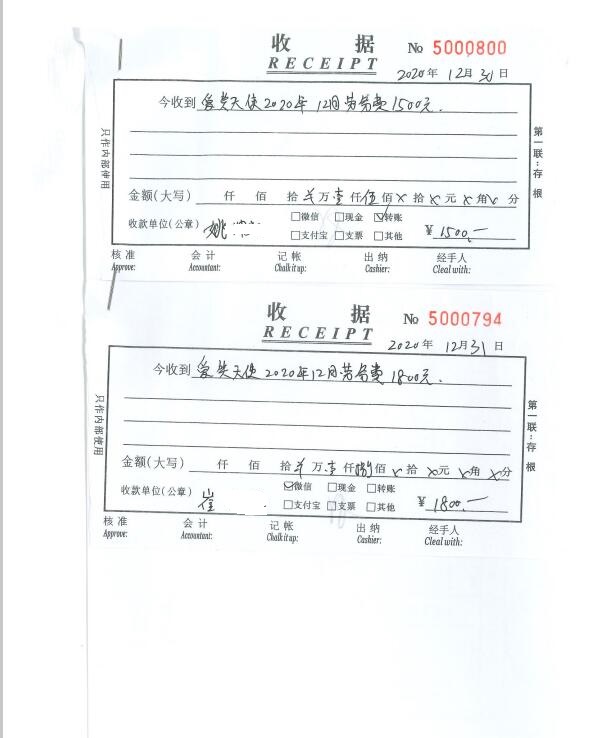 收 据 No 5000800
RECEIPT
2020年 12月 30日
今收到 爱笑天使2020年12月劳务费1500元.
金额(大写) 仟 佰 拾 万 壹 仟 伍 佰 × 拾 × 元 × 角 × 分
收款单位(公章) 姚 □微信 □现金 ☑转账
□支付宝 □支票 □其他 ¥ 1500.—
核 准 会 计 记 帐 出 纳 经手人
Approve: Accountant: Chalk it up: Cashier: Cleal with:
只作内部使用
第一联:存根
收 据 No 5000794
RECEIPT
2020年 12月31日
今收到 爱笑天使2020年12月劳务费1800元.
金额(大写) 仟 佰 拾 万 壹 仟 捌 佰 × 拾 × 元 × 角 × 分
收款单位(公章) 崔 ☑微信 □现金 □转账
□支付宝 □支票 □其他 ¥ 1800.—
核 准 会 计 记 帐 出 纳 经手人
Approve: Accountant: Chalk it up: Cashier: Cleal with:
只作内部使用
第一联:存根